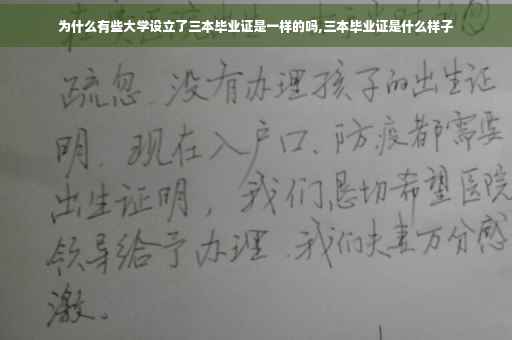 为什么有些大学设立了三本毕业证是一样的吗,三本毕业证是什么样子
疏忽、没有办理孩子的出生证
明、现在入户口、防疫都需要
出生证明，我们恳切希望医院
领导给予办理、我们夫妻万分感
激。